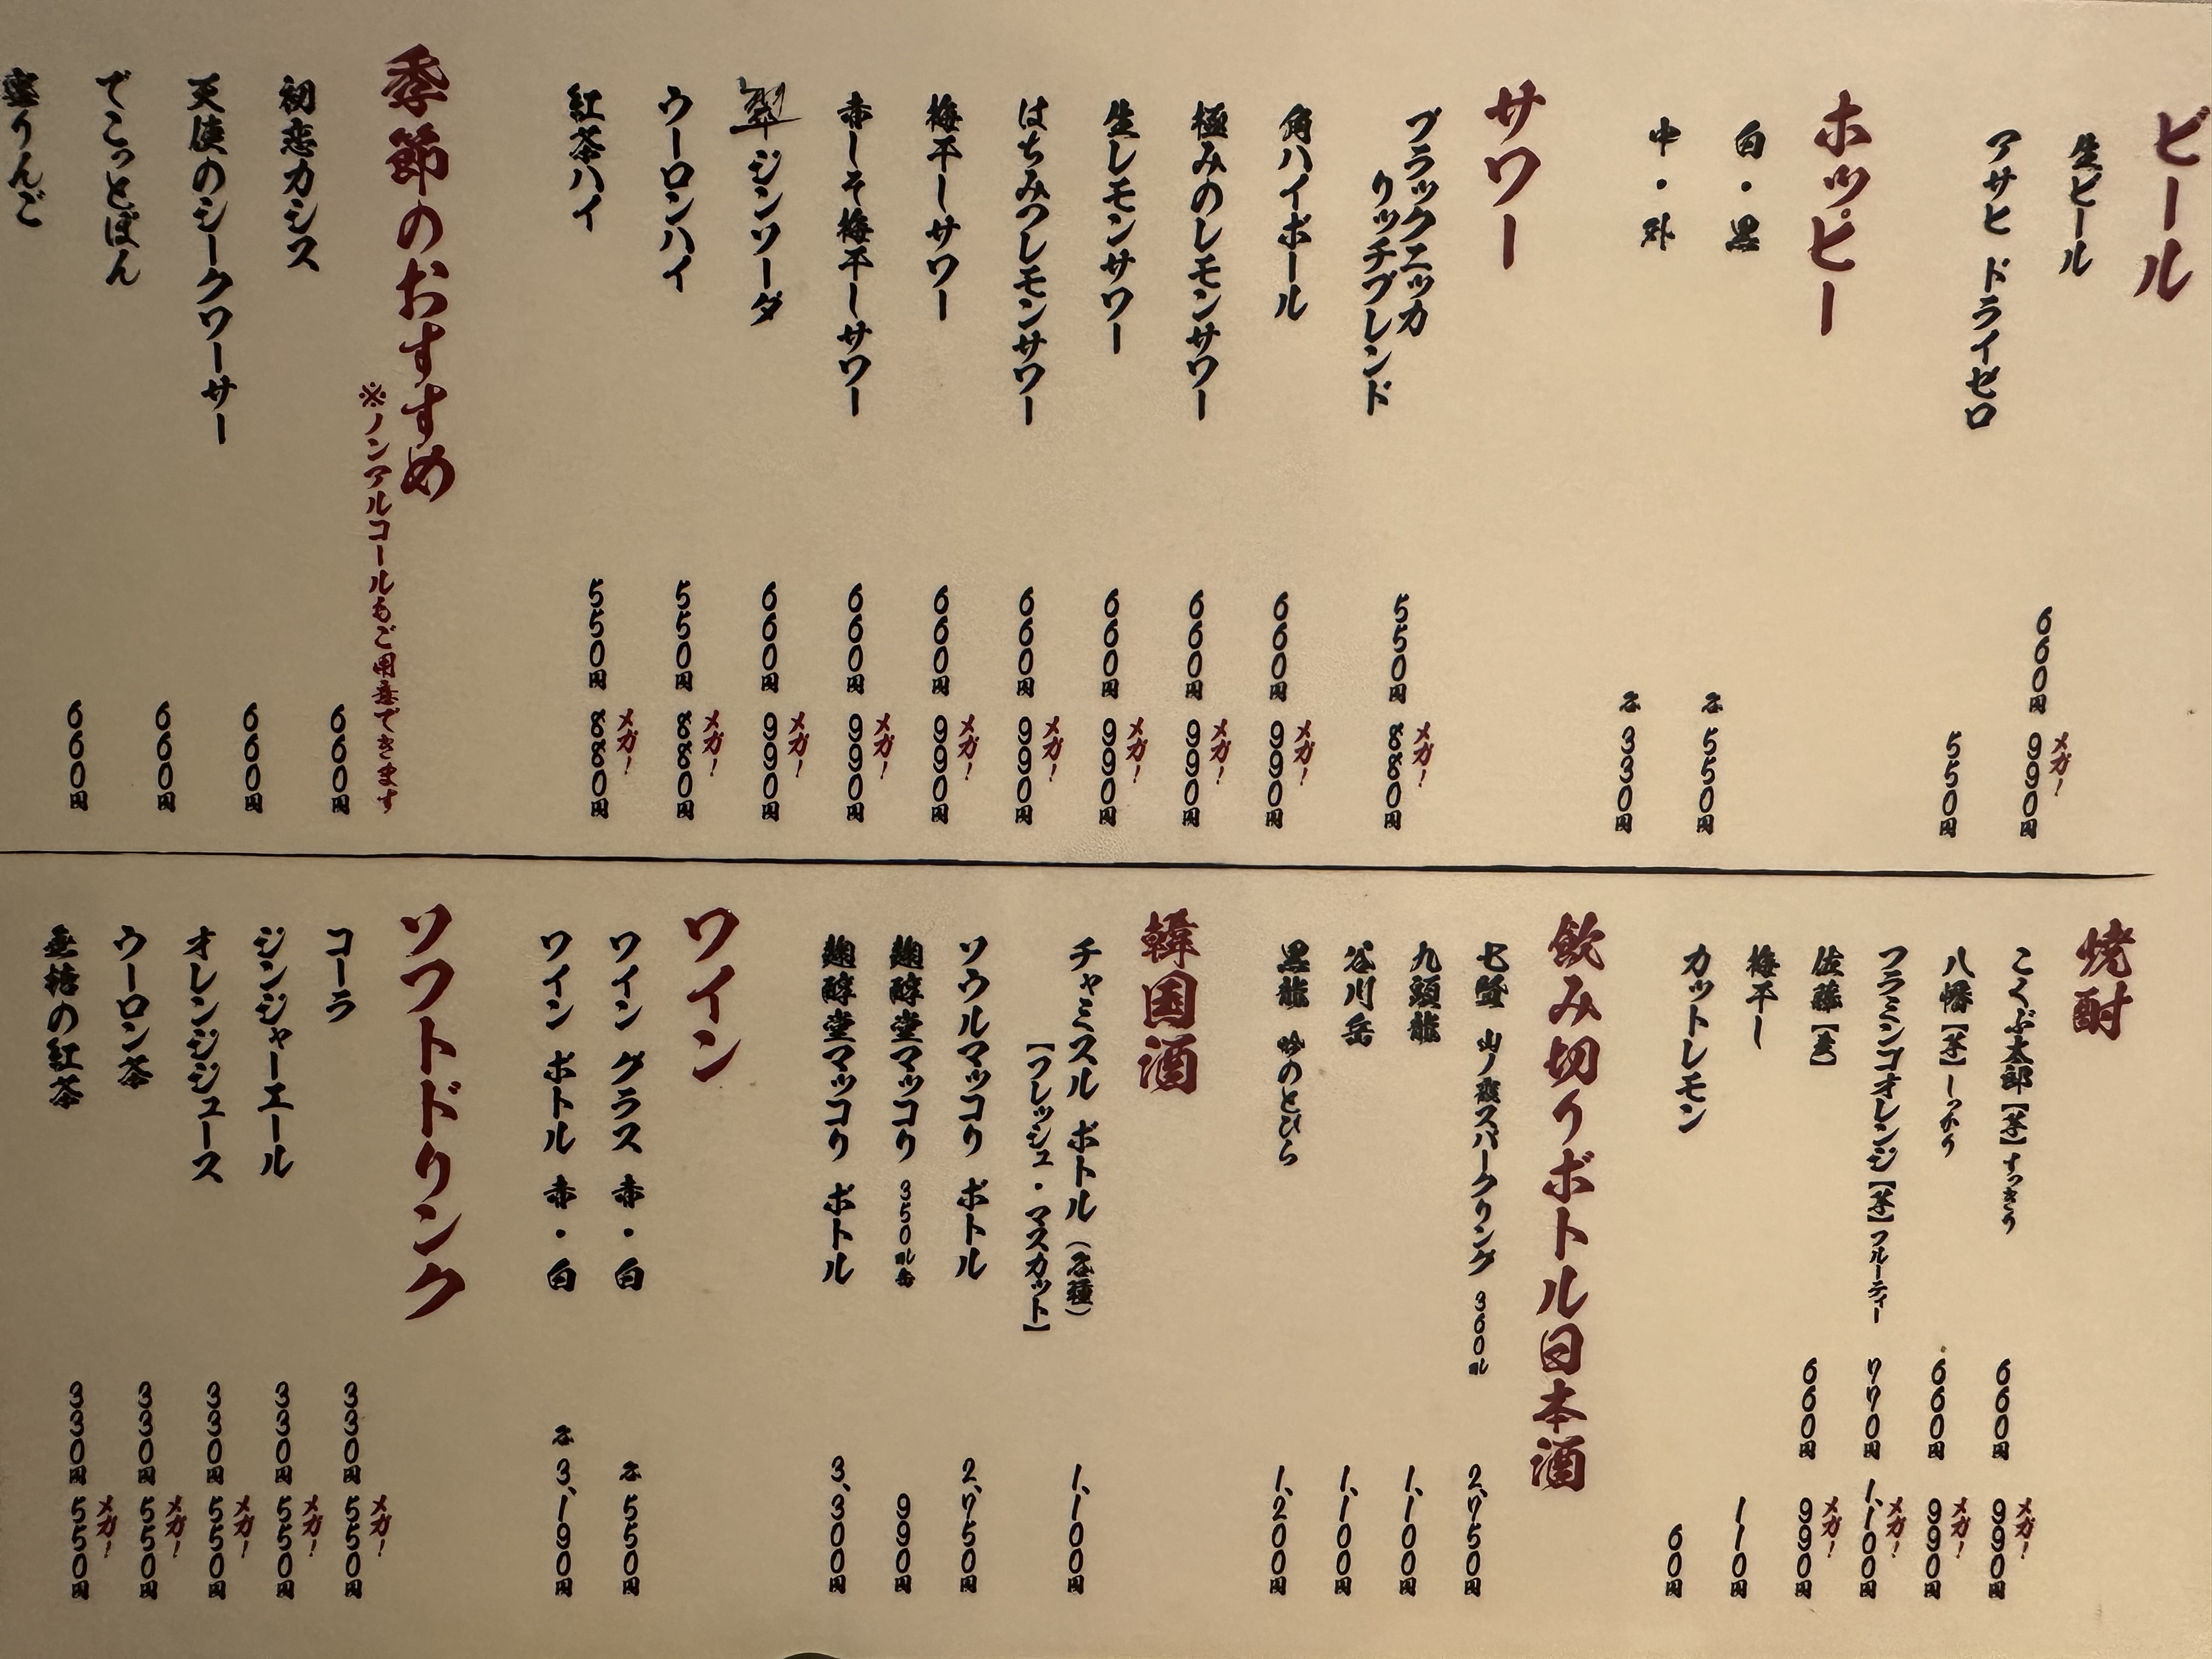 ビール
生ビール 660円 メガ！ 990円
アサヒ ドライゼロ 550円
ホッピー
白・黒 各 550円
中・外 各 330円
サワー
ブラックニッカ
リッチブレンド 550円 メガ！ 880円
角ハイボール 660円 メガ！ 990円
極みのレモンサワー 660円 メガ！ 990円
生レモンサワー 660円 メガ！ 990円
はちみつレモンサワー 660円 メガ！ 990円
梅干しサワー 660円 メガ！ 990円
赤しそ梅干しサワー 660円 メガ！ 990円
翠ジンソーダ 660円 メガ！ 990円
ウーロンハイ 550円 メガ！ 880円
紅茶ハイ 550円 メガ！ 880円
季節のおすすめ
※ノンアルコールもご用意できます
初恋カシス 660円
天使のシークワーサー 660円
でこっとぽん 660円
蜜りんご 660円
焼酎
こくぶ太郎【芋】すっきり 660円 メガ！ 990円
八幡【芋】しっかり 660円 メガ！ 990円
フラミンゴオレンジ【芋】フルーティー 770円 メガ！ 1,100円
佐藤【麦】 660円 メガ！ 990円
梅干し 110円
カットレモン 60円
飲み切りボトル日本酒
七賢 山ノ霞スパークリング 360ml 2,750円
九頭龍 1,100円
谷川岳 1,100円
黒龍 吟のとびら 1,200円
韓国酒
チャミスル ボトル（各種）
【フレッシュ・マスカット】 1,100円
ソウルマッコリ ボトル 2,750円
麹醇堂マッコリ 350ml缶 990円
麹醇堂マッコリ ボトル 3,300円
ワイン
ワイン グラス 赤・白 各 550円
ワイン ボトル 赤・白 各 3,190円
ソフトドリンク
コーラ 330円 メガ！ 550円
ジンジャーエール 330円 メガ！ 550円
オレンジジュース 330円 メガ！ 550円
ウーロン茶 330円 メガ！ 550円
無糖の紅茶 330円 メガ！ 550円